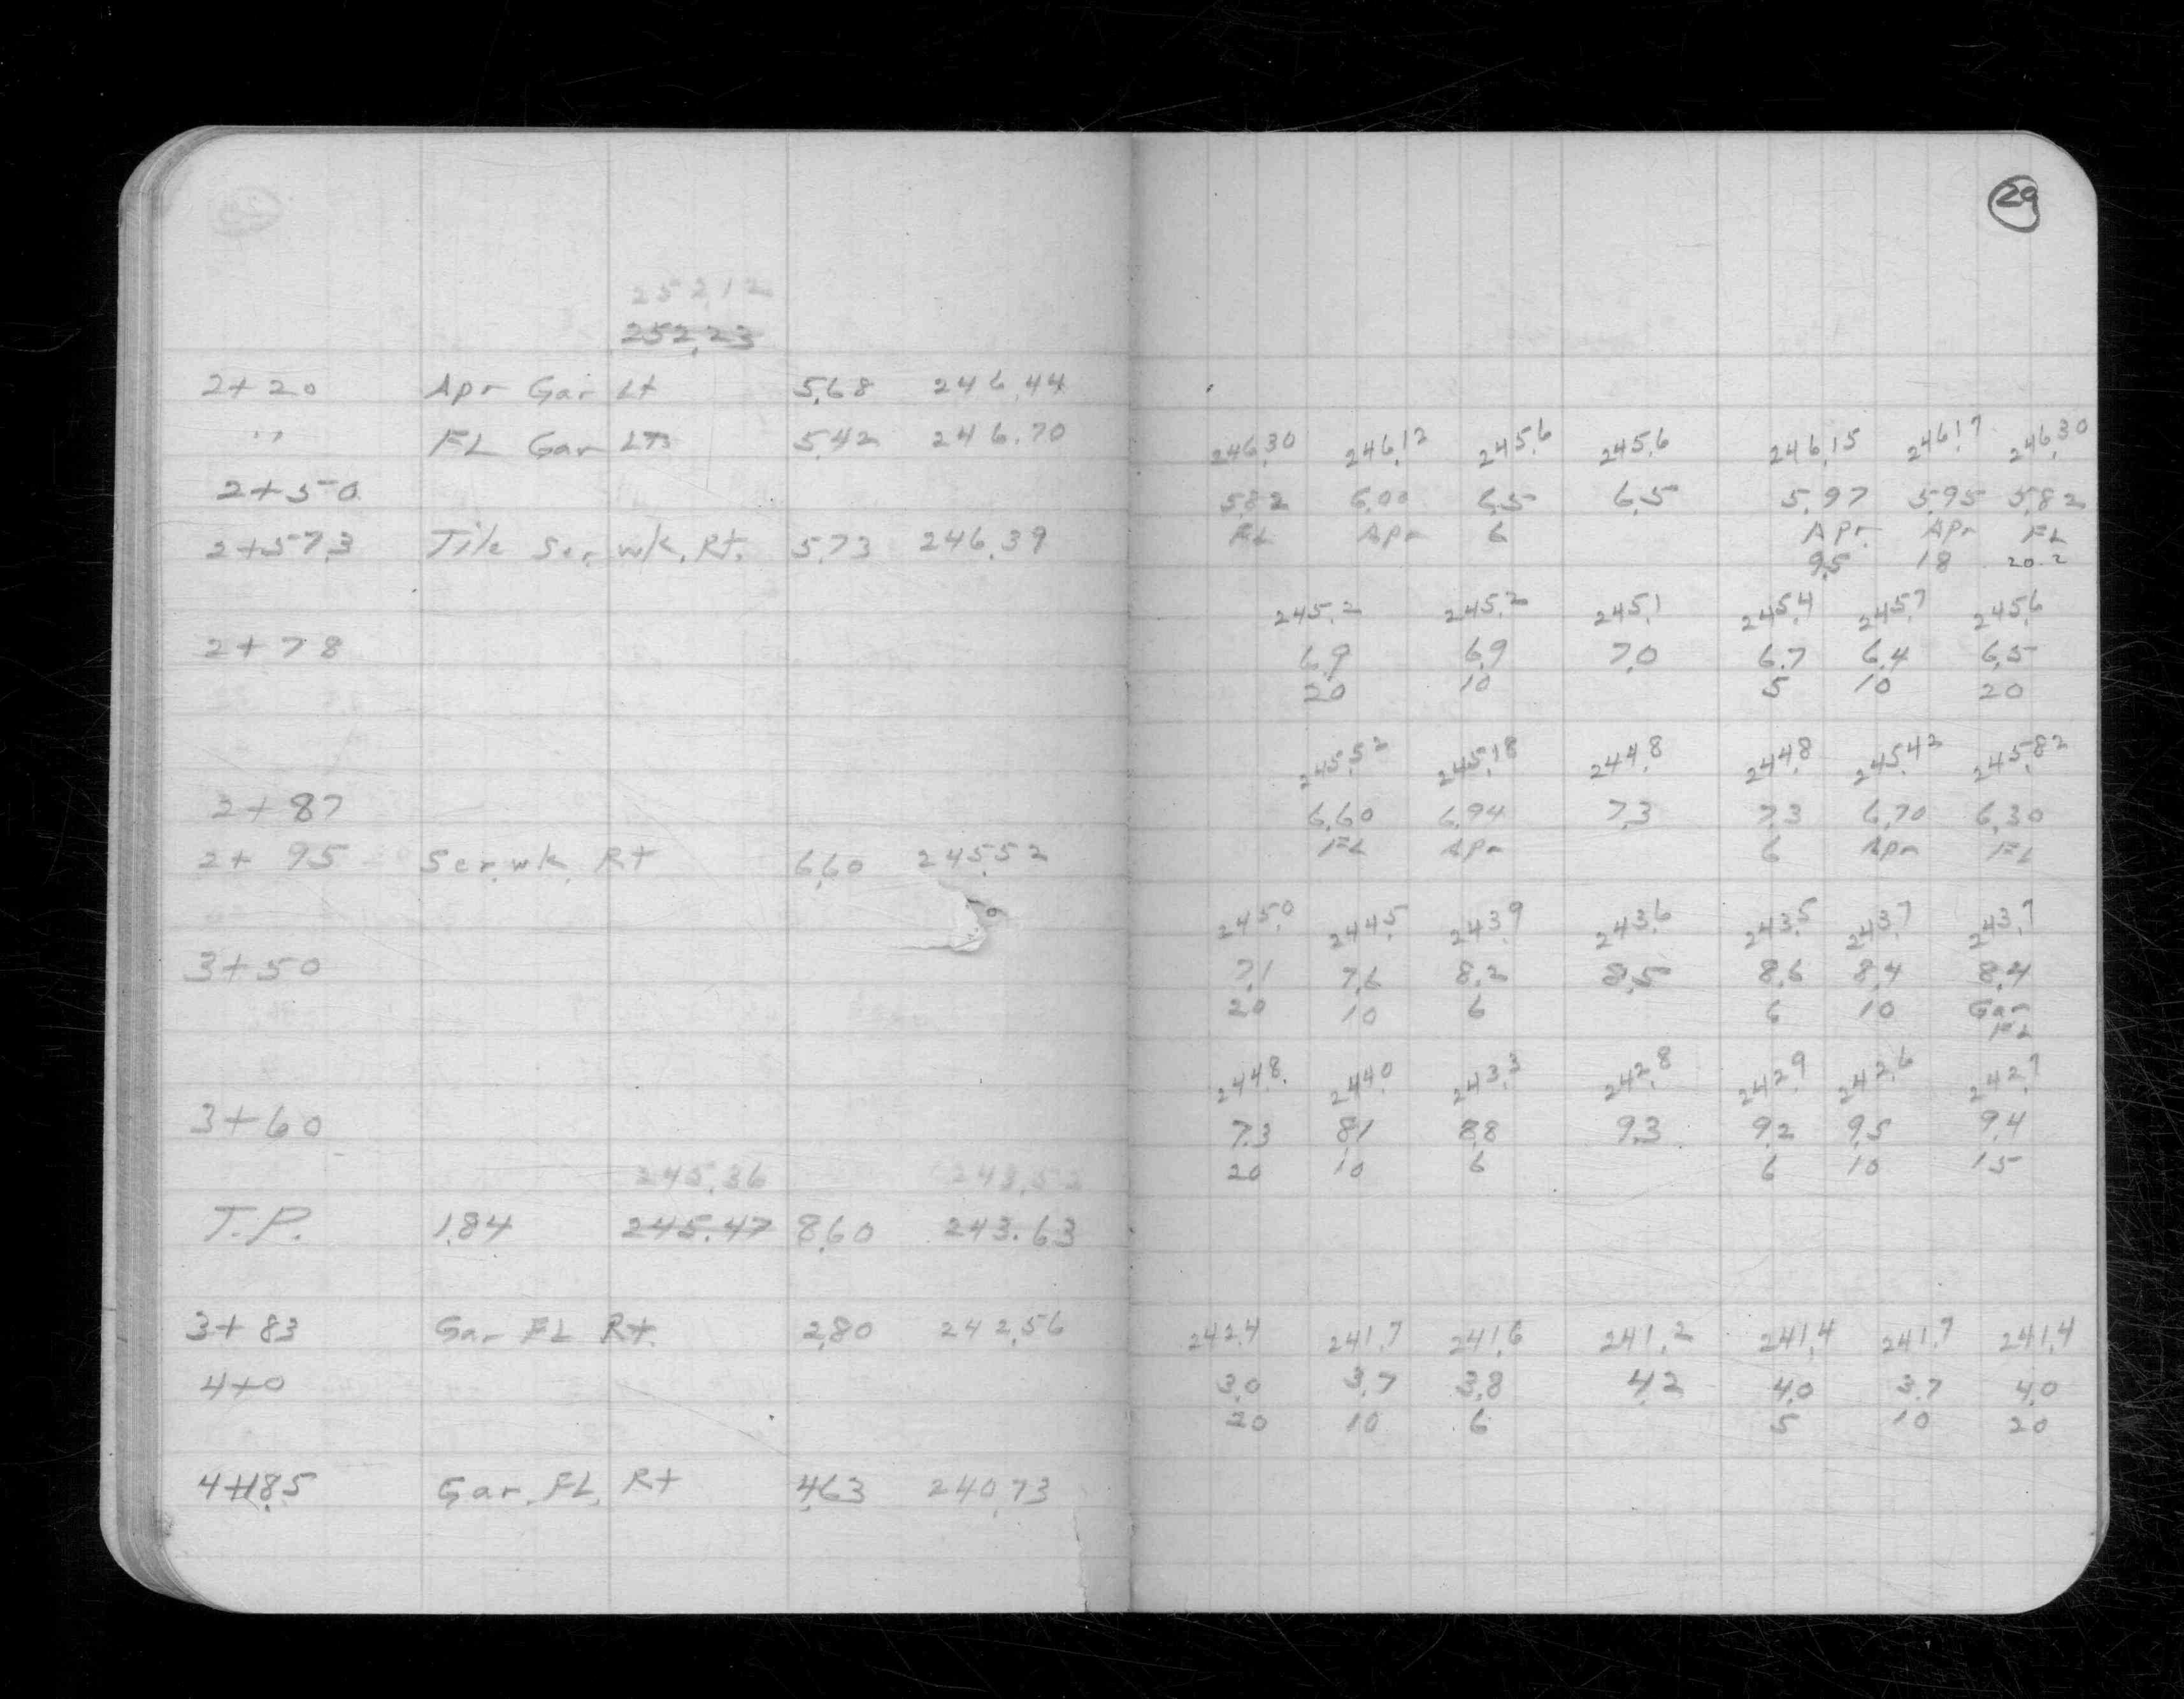 29
252.12
252.23
2+20 Apr Gar Lt 5.68 246.44
" FL Gar Lt 5.42 246.70
2+50
2+57.3 Tile Ser. wk. Rt. 5.73 246.39
2+78
2+87
2+95 Ser. wk. Rt 6.60 245.52
3+50
3+60
245.36 243.52
T.P. 1.84 245.47 8.60 243.63
3+83 Gar FL Rt. 2.80 242.56
4+0
4+18.5 Gar. FL. Rt 4.63 240.73
246.30 246.12 245.6 245.6 246.15 246.17 246.30
5.82 6.00 6.5 6.5 5.97 5.95 5.82
FL Apr 6 Apr. Apr FL
9.5 18 20.2
245.2 245.2 245.1 245.4 245.7 245.6
6.9 6.9 7.0 6.7 6.4 6.5
20 10 5 10 20
245.52 245.18 244.8 244.8 245.42 245.82
6.60 6.94 7.3 7.3 6.70 6.30
FL Apr 6 Apr FL
245.0 244.5 243.9 243.6 243.5 243.7 243.7
7.1 7.6 8.2 8.5 8.6 8.4 8.4
20 10 6 6 10 Gar
FL
244.8 244.0 243.3 242.8 242.9 242.6 242.7
7.3 8.1 8.8 9.3 9.2 9.5 9.4
20 10 6 6 10 15
242.4 241.7 241.6 241.2 241.4 241.7 241.4
3.0 3.7 3.8 4.2 4.0 3.7 4.0
20 10 6 5 10 20